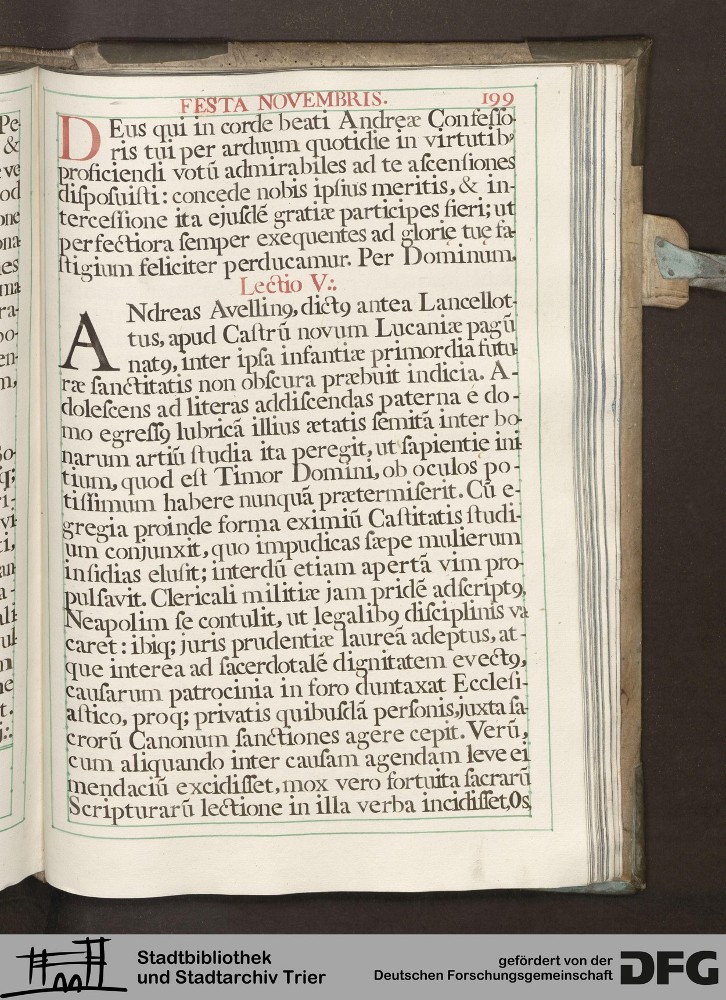 FESTA NOVEMBRIS. 199
DEus qui in corde beati Andreæ Confeſſo-
ris tui per arduum quotidie in virtutib9
proficiendi votũ admirabiles ad te aſcenſiones
diſpoſuiſti: concede nobis ipſius meritis, & in-
terceſſione ita ejuſdẽ gratiæ participes fieri; ut
perfectiora ſemper exequentes ad glorię tuę fa-
ſtigium feliciter perducamur. Per Dominum.
Lectio V:.
ANdreas Avellin9, dict9 antea Lancellot-
tus, apud Caſtrũ novum Lucaniæ pagũ
nat9, inter ipſa infantiæ primordia futu-
ræ ſanctitatis non obſcura præbuit indicia. A-
doleſcens ad literas addiſcendas paterna e do-
mo egreſſ9 lubricã illius ætatis ſemitã inter bo-
narum artiũ ſtudia ita peregit, ut ſapientie ini-
tium, quod eſt Timor Domini, ob oculos po-
tiſſimum habere nunquã prætermiſerit. Cũ e-
gregia proinde forma eximiũ Caſtitatis ſtudi-
um conjunxit, quo impudicas ſæpe mulierum
inſidias eluſit; interdũ etiam apertã vim pro-
pulſavit. Clericali militiæ jam pridẽ adſcript9,
Neapolim ſe contulit, ut legalib9 diſciplinis va
caret: ibiq; juris prudentiæ laureã adeptus, at-
que interea ad ſacerdotalẽ dignitatem evect9,
cauſarum patrocinia in foro duntaxat Eccleſi-
aſtico, proq; privatis quibuſdã perſonis, juxta ſa-
crorũ Canonum ſanctiones agere cepit. Verũ,
cum aliquando inter cauſam agendam leve ei
mendaciũ excidiſſet, mox vero fortuita ſacrarũ
Scripturarũ lectione in illa verba incidiſſet, Os,
Stadtbibliothek
und Stadtarchiv Trier
gefördert von der
Deutschen Forschungsgemeinschaft
DFG